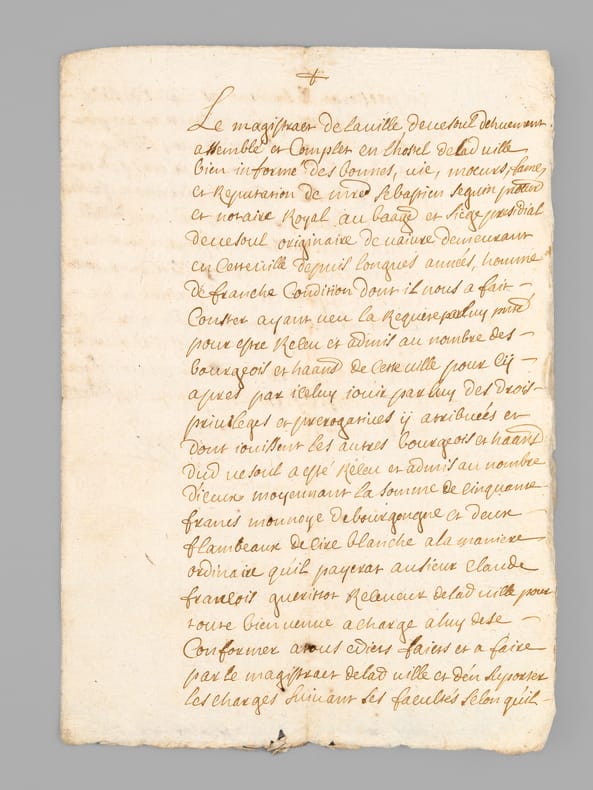 Le magistraet de la ville de vesoul dehuement
assemblé et Complet en Lhostel de lad ville
bien informé des bonnes, vie, mœurs, fame,
et Reputation de mre Sebastien Seguin
et notaire Royal au baage et siege presidial
de vesoul originaire de vaivre demeurant
en Cette ville depuis longues années, homme
de franche Condition dont il nous a fait –
Conster ayant veu la Requeste par luy
pour estre Receu et admis au nombre des –
bourgeois et haand de Cette ville pour Cy –
apres par iceluy iouir par luy des drois –
privileges et prerogatives ÿ atribueés et
dont iouissent les autres bourgeois et haand
dud vesoul a esté Receu et admis au nombre
d'iceux moyennant la somme de Cinquante
francs monnoye de bourgongne et deux –
flambeaux de Cire blanche a la maniere
ordinaire qu'il payerat au sieur Claude
françois Receveur de lad ville pour
toute bienvenue a charge a luy de se –
Conformer a tous edicts faicts et a faire
par le magistraet de lad ville et d'en suporter
les charges suivant ses facultés selon qu'il –